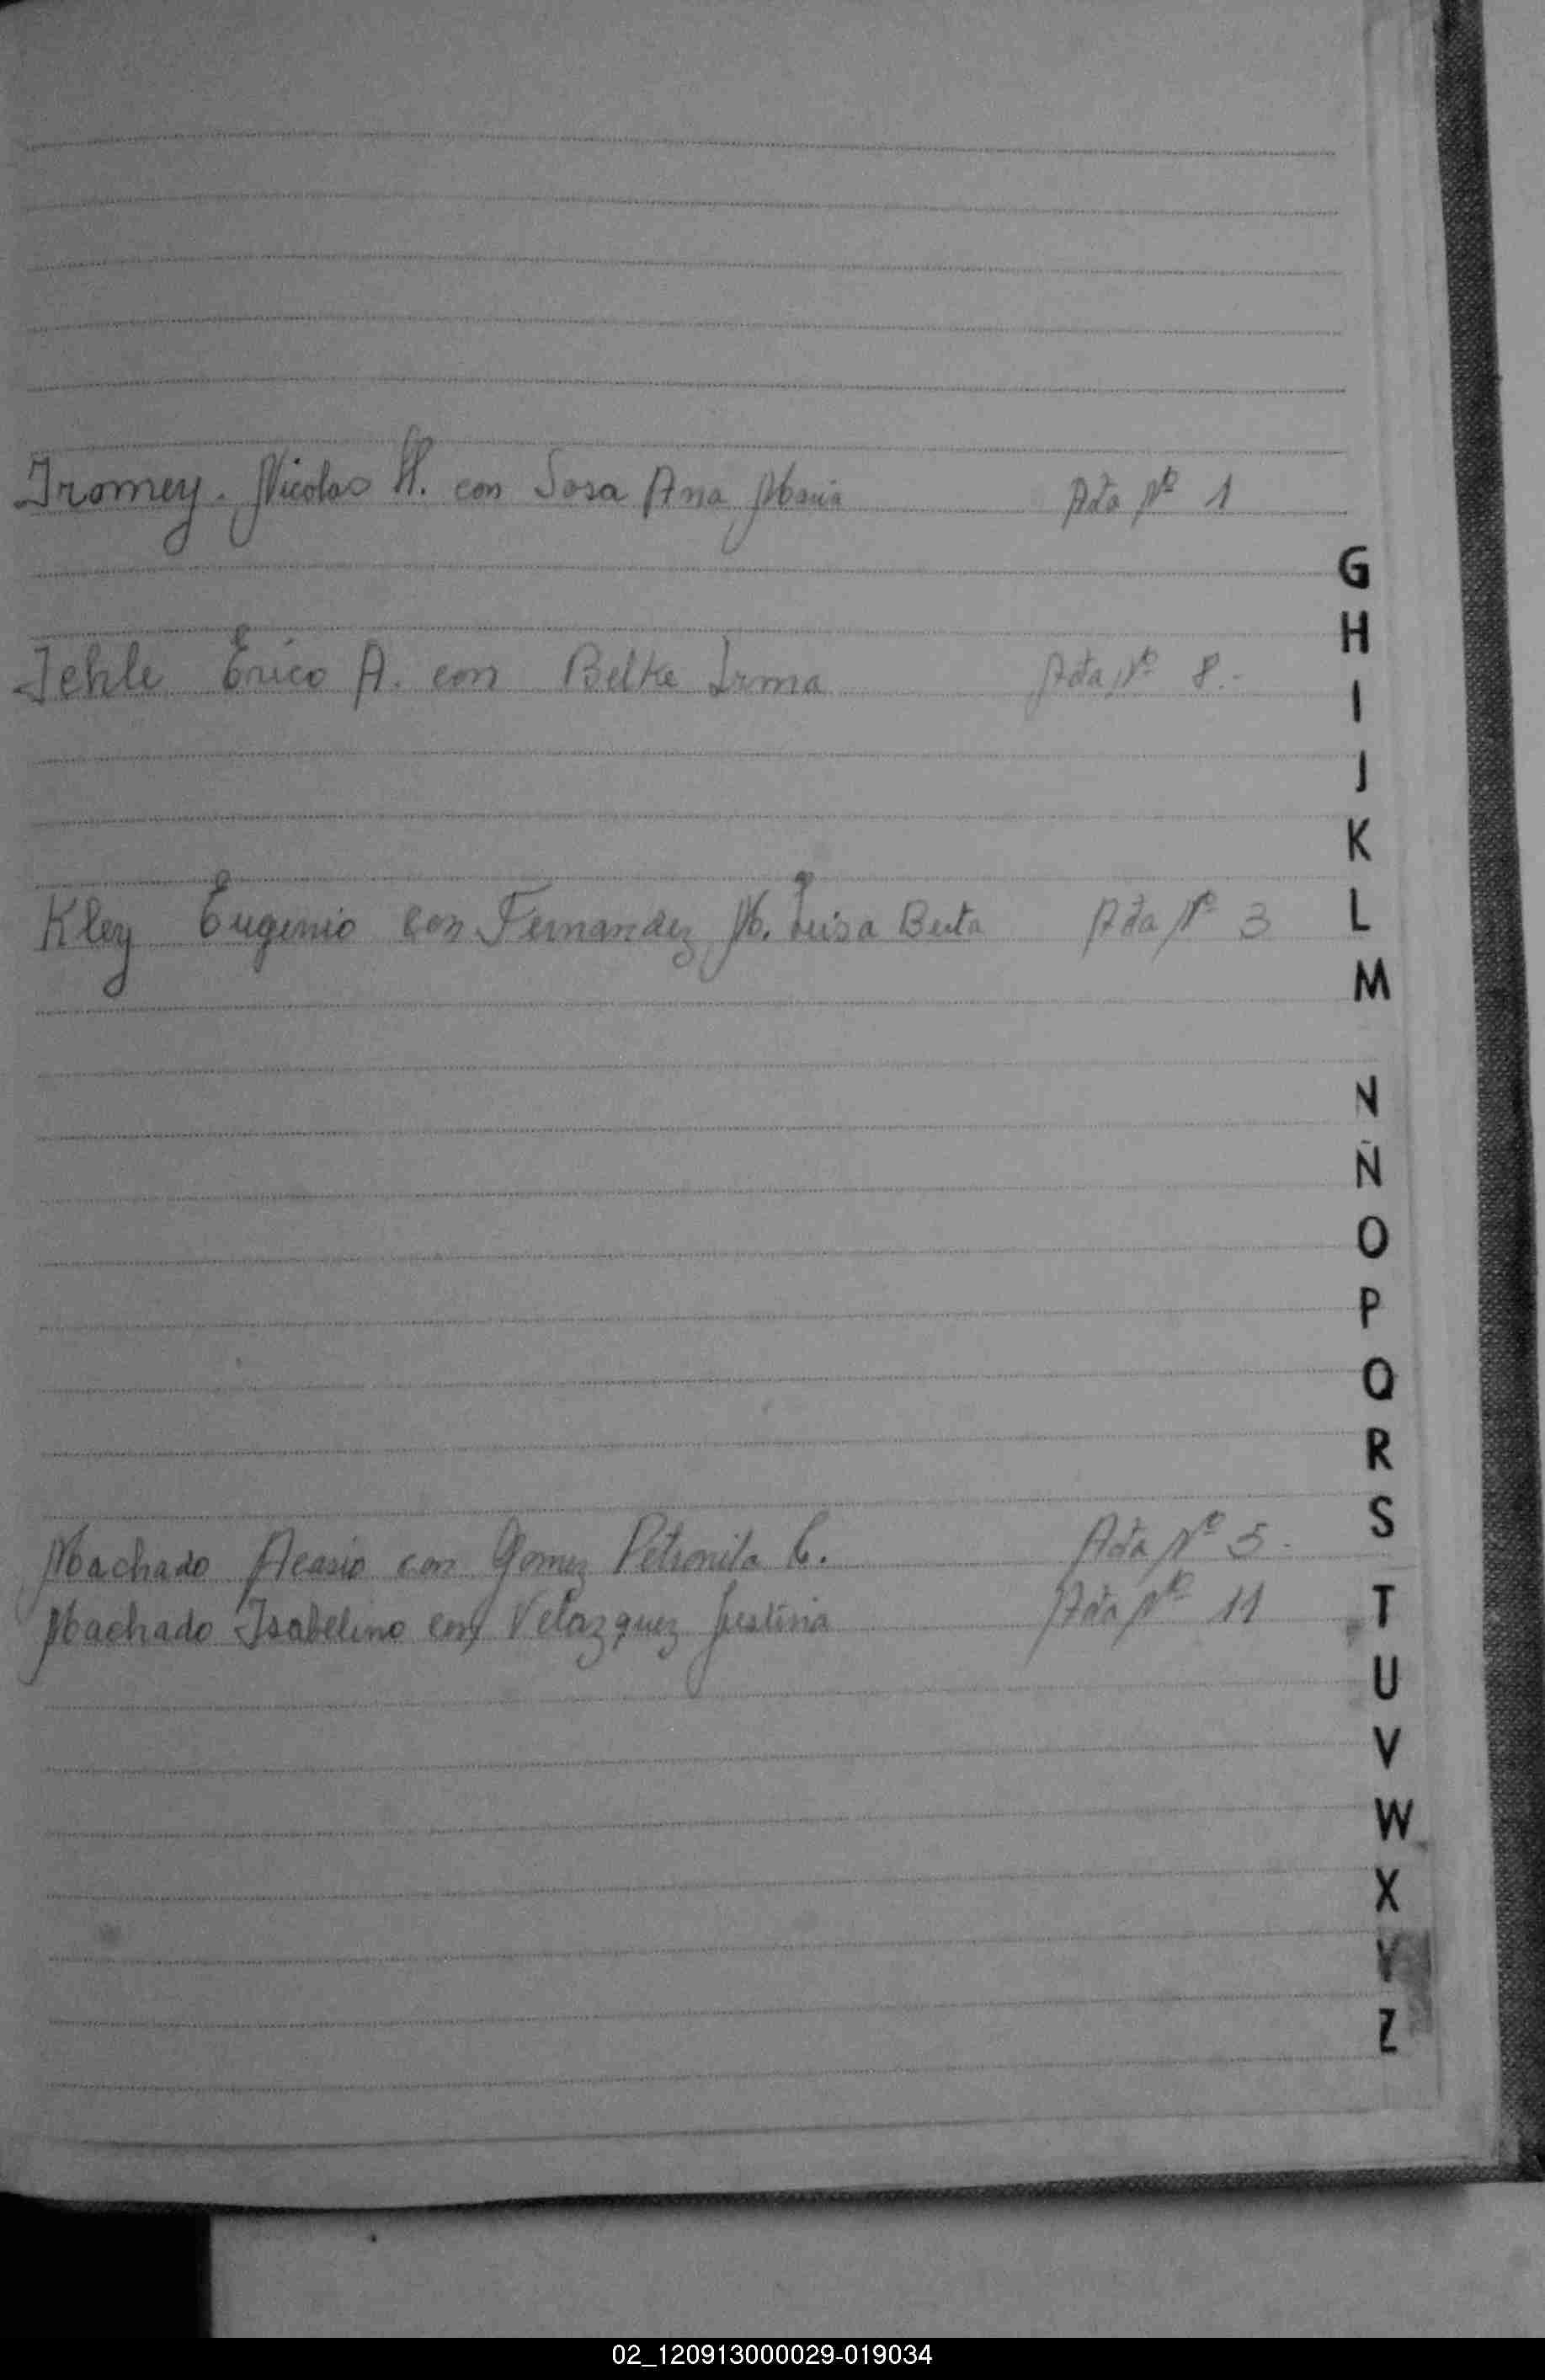 Iromey. Nicolas H. con Sosa Ana Maria Acta Nº 1
G
H
Jehle Erico A. con Belke Irma Acta Nº 8.-
I
J
K
Kley Eugenio con Fernandez M. Luisa Berta Acta Nº 3
L
M
N
Ñ
O
P
Q
R
S
Machado Acasio con Gomez Petronila C. Acta Nº 5.
Machado Isabelino con Velazquez Justina Acta Nº 11
T
U
V
W
X
Y
Z
02_120913000029-019034